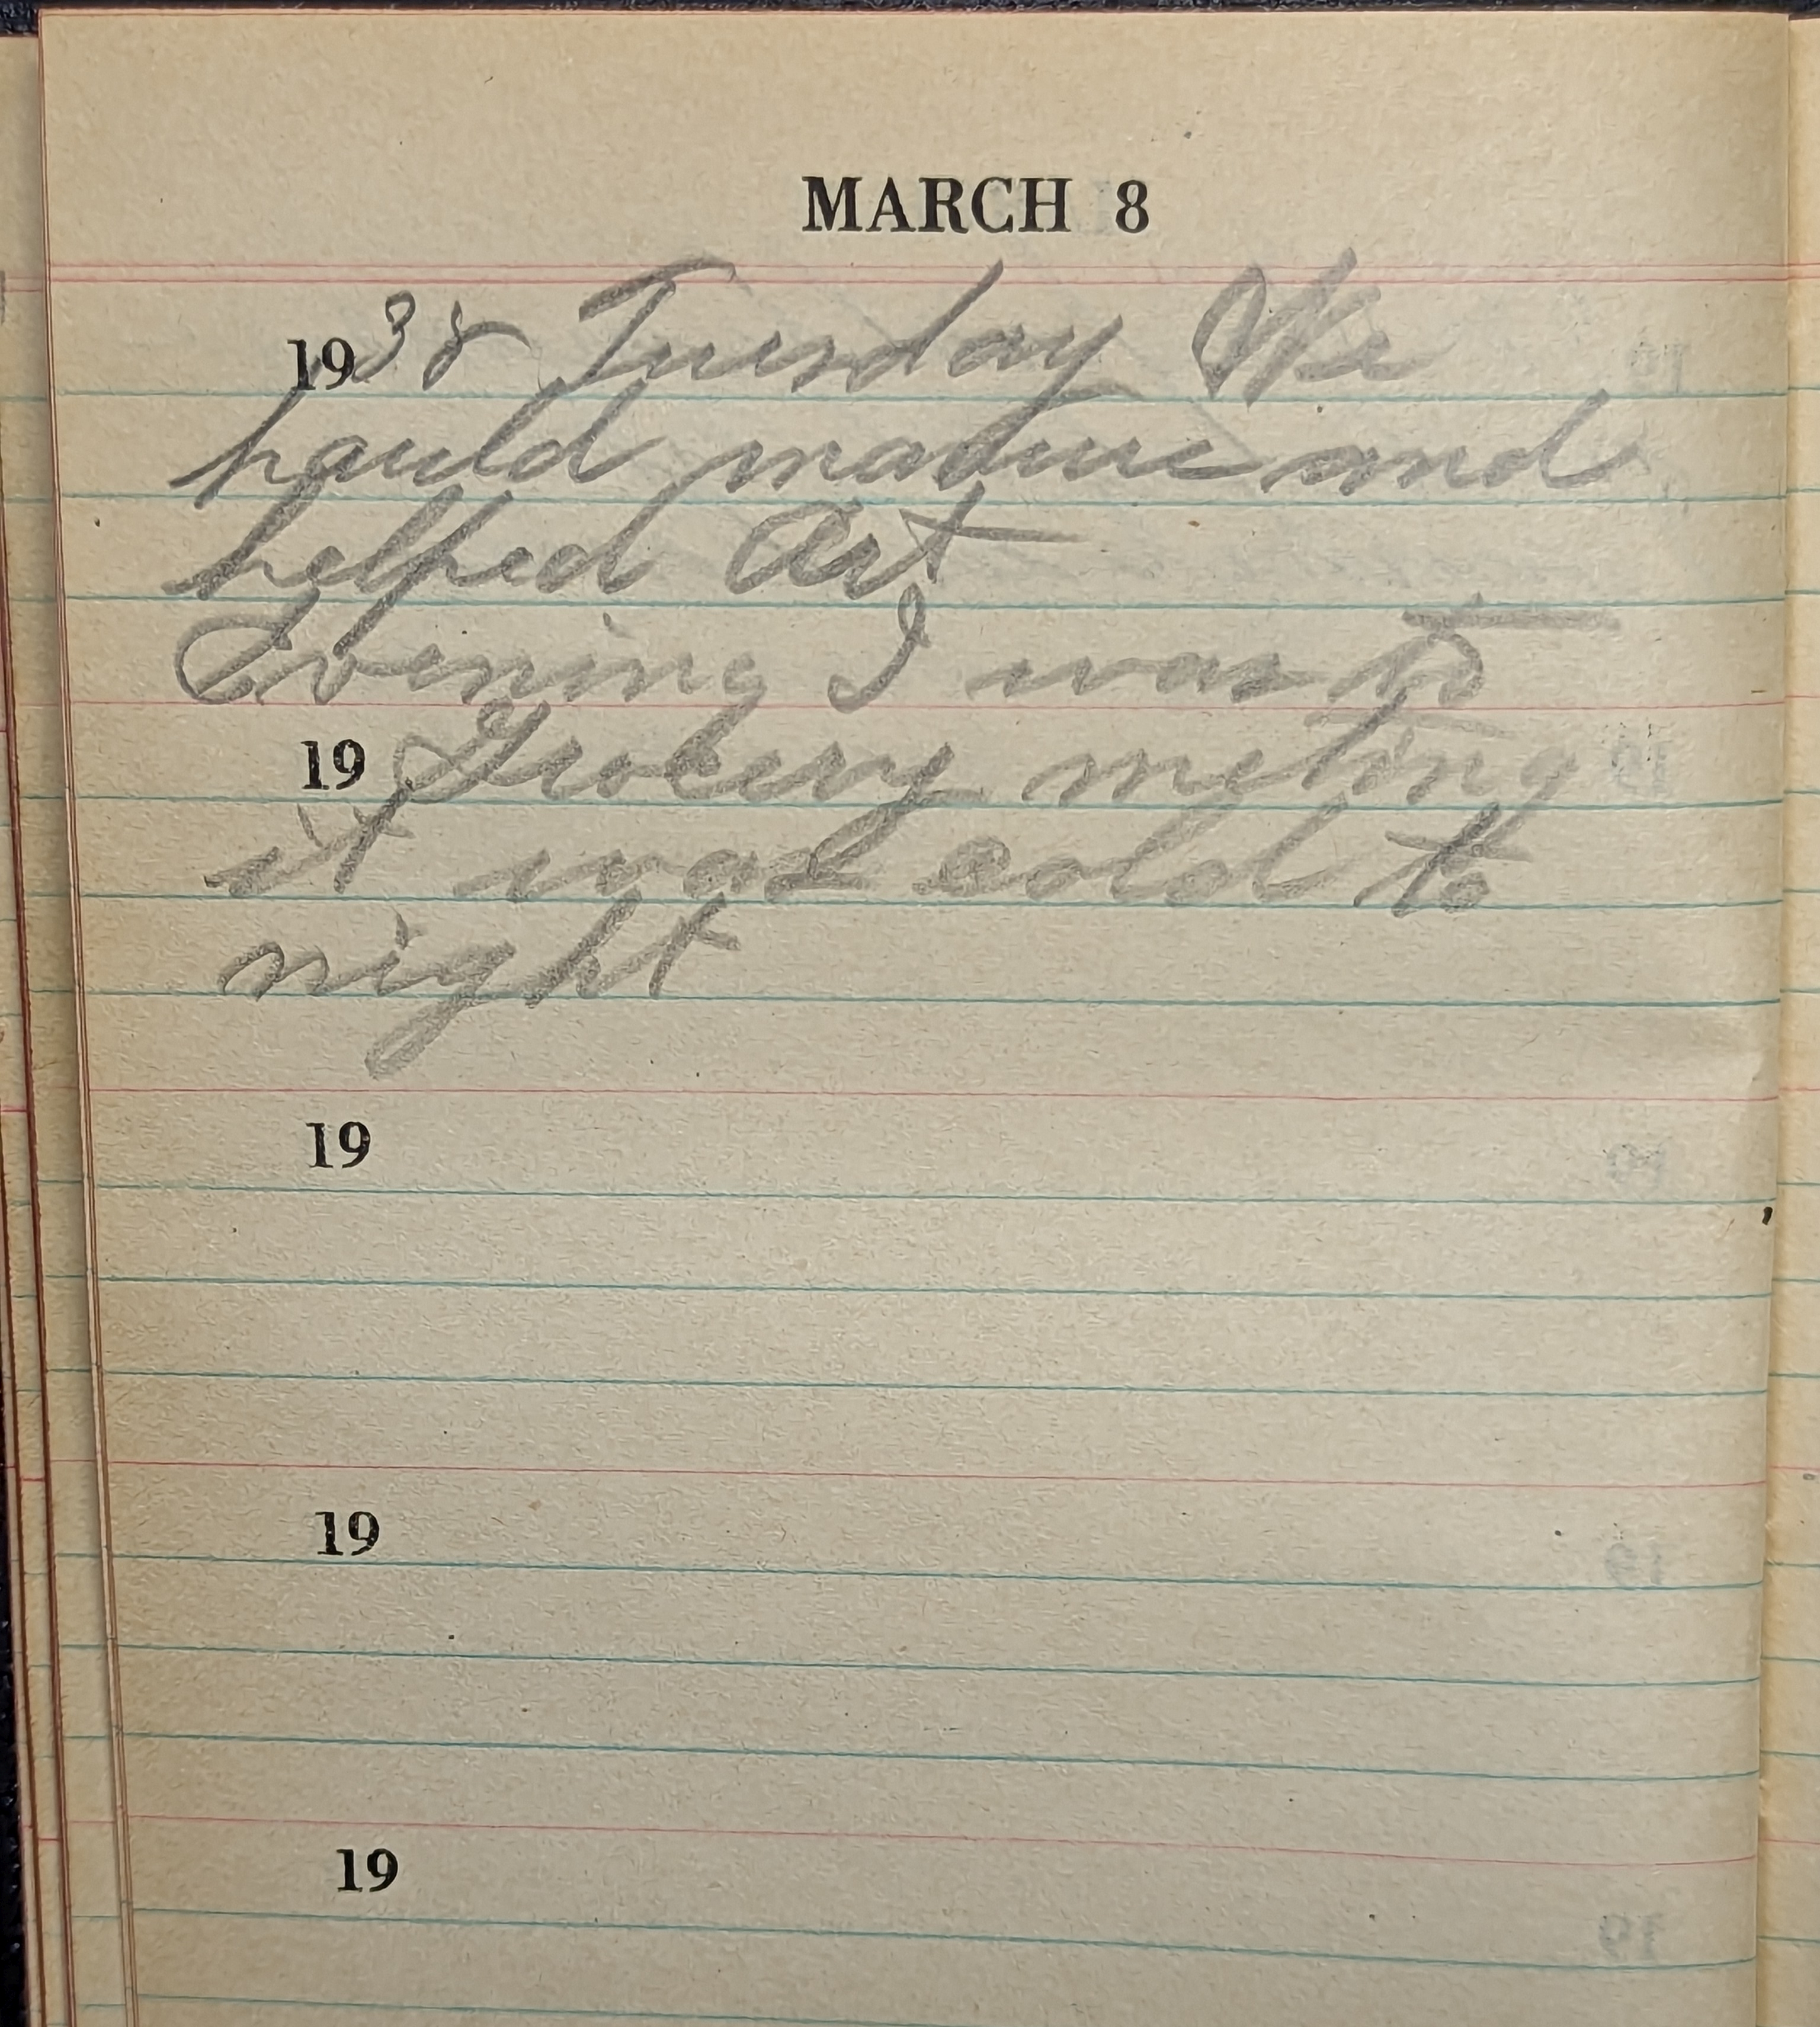 MARCH 8
1938 Tuesday We
hauld manure and
helped Art
Evening I was to
19 Grocery meting
it was sold to
night
19
19
19